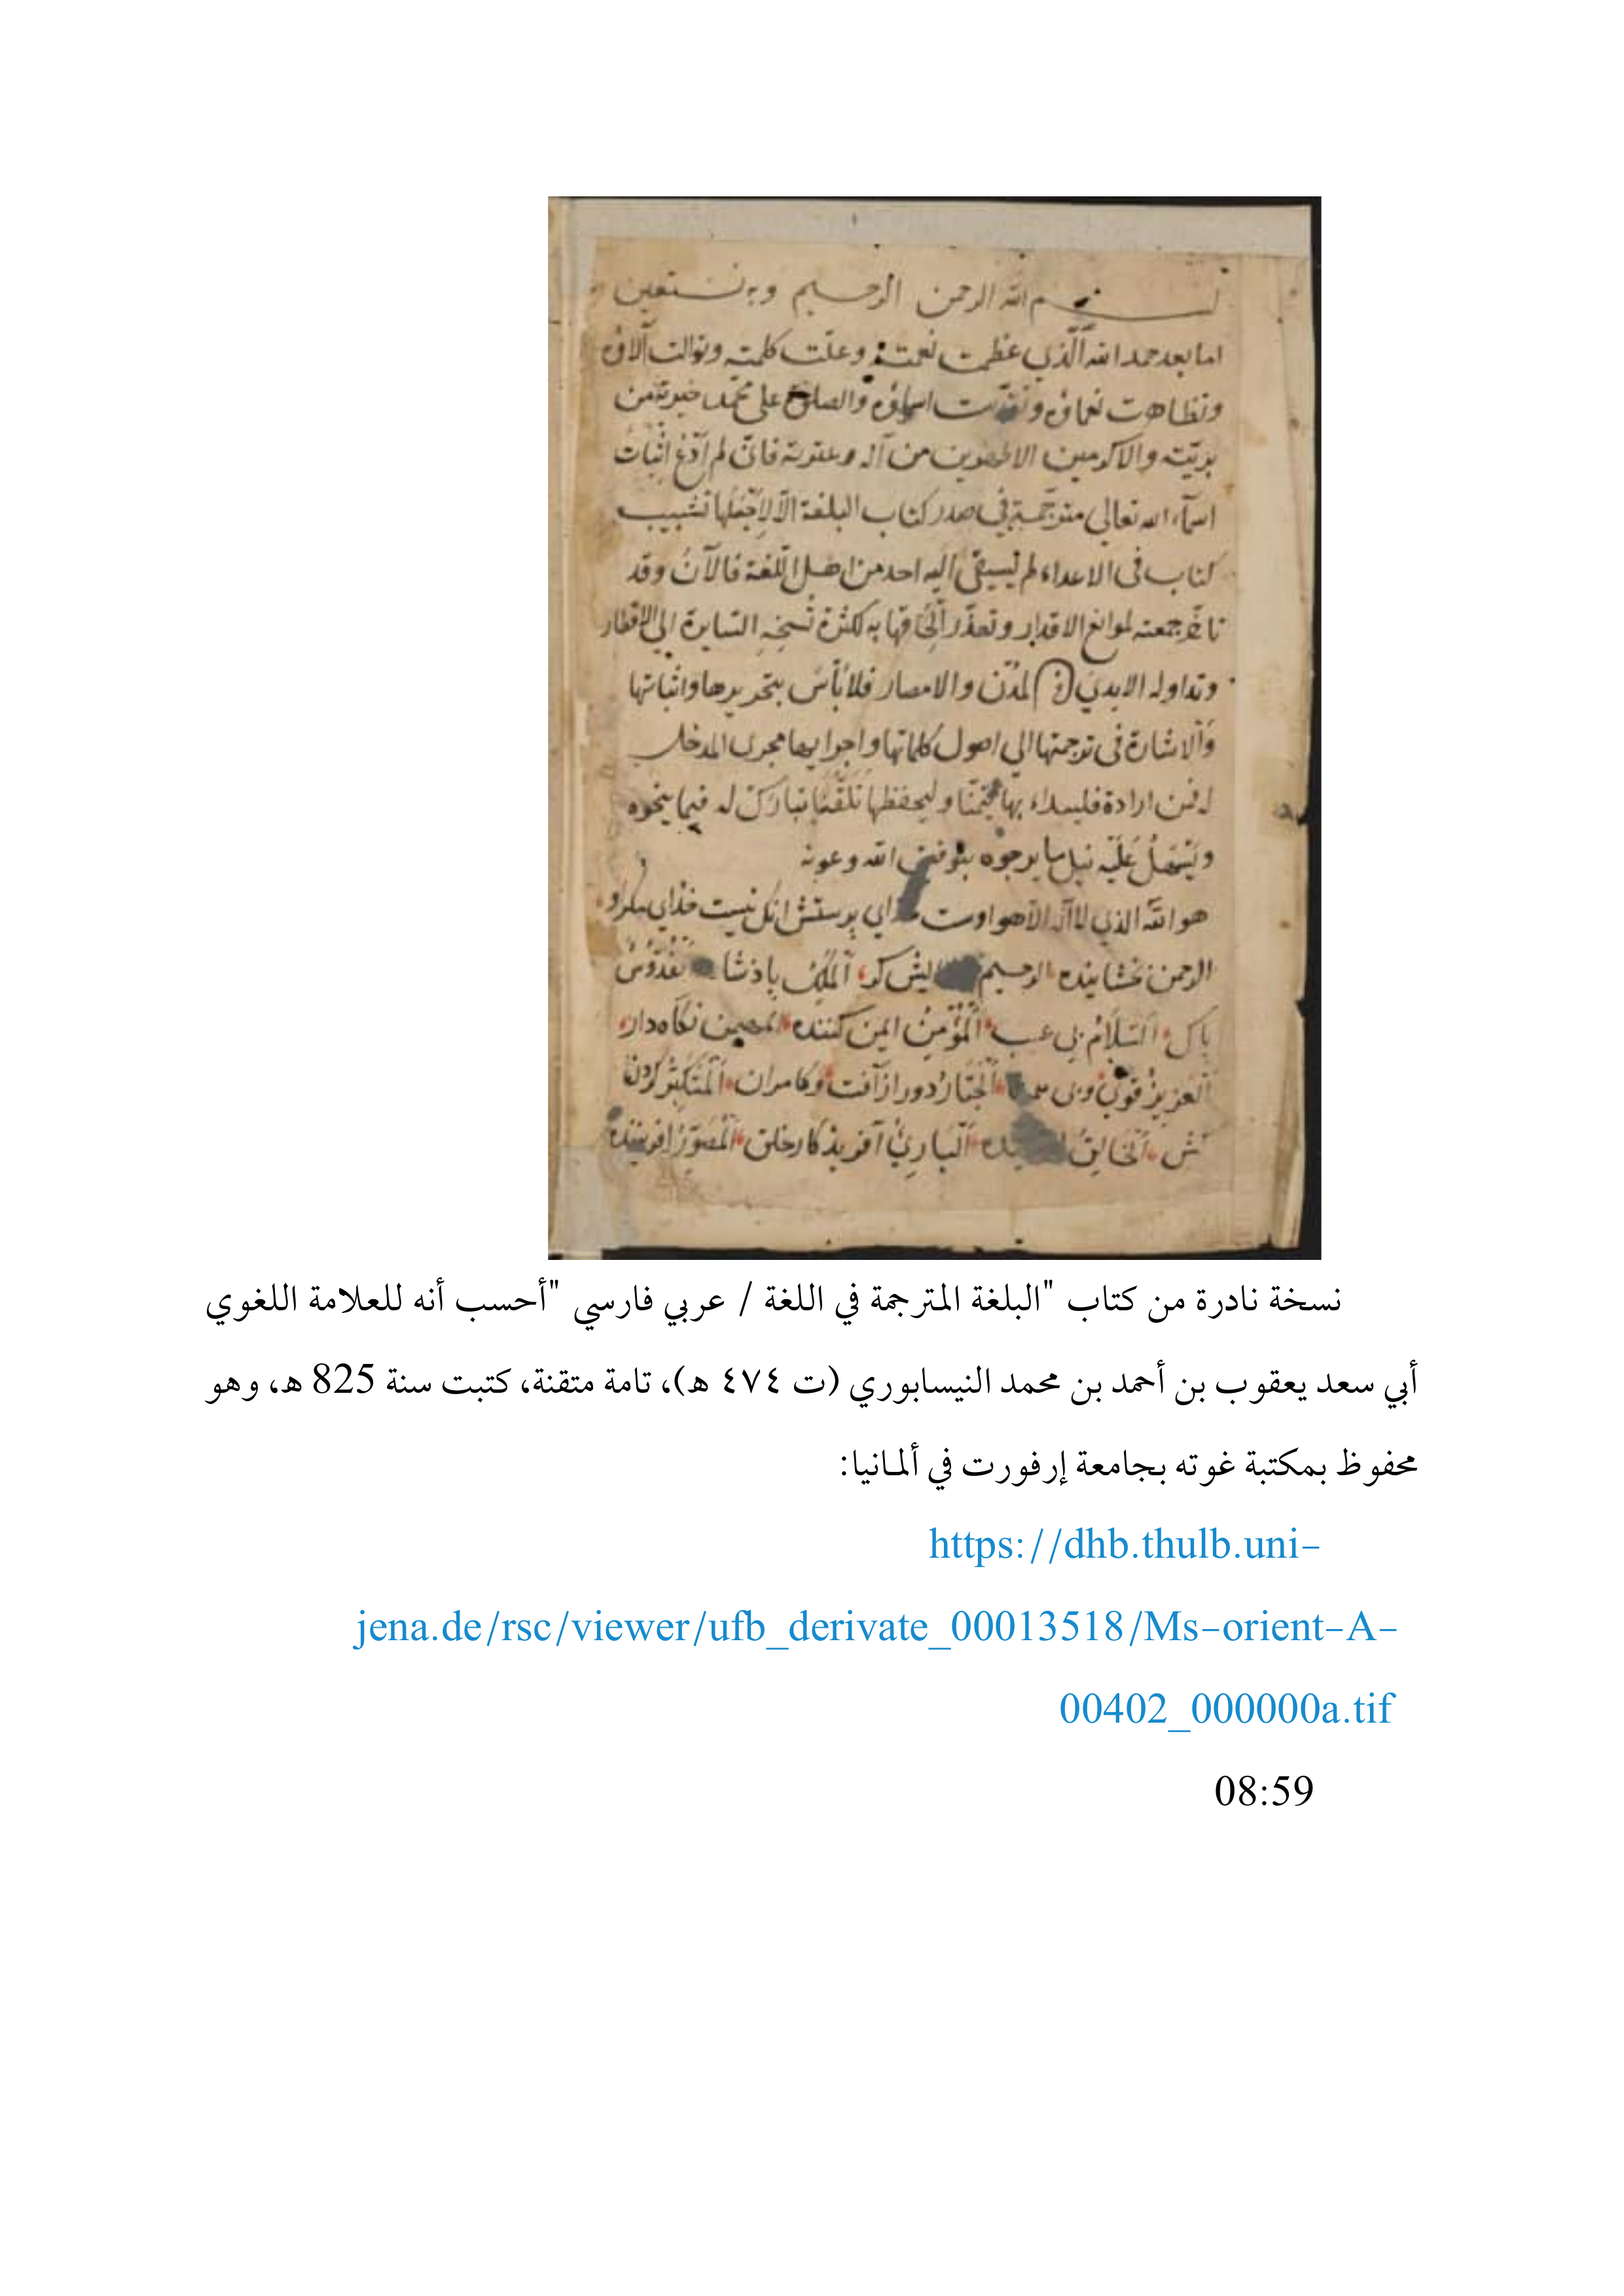 بسم الله الرحمن الرحيم وبه نستعين
اما بعد حمد الله الذي عظمت نعمته وعلت كلمته وتوالت آلاؤه
وتظاهرت نعماؤه وتقدست اسماؤه والصلوة على محمد خيرته من
بريته والاكرمين الاطهرين من آله وعترته فانى لم أدع اثبات
اسماء الله تعالي مترجمة في صدر كتاب البلغة الا لاجعلها تشبيب
كتاب فى الاعداء لم يسبقى اليه احد من اهل اللغة فالآن وقد
تأخر جمعه لموانع الاقدار وتعذر الحاقها به لكثرة نسخه السايرة الي الاقطار
وتداوله الايدي فى المدن والامصار فلا بأس بتحريرها واثباتها
والاشارة فى ترجمتها الي اصول كلماتها واجرايها مجرى المدخل
فمن اراده فليبداء بها تيمنا وليحفظها تلقنا يبارك له فيما ينحوه
ويسهل عليه نيل ما يرجوه بتوفيق الله وعونه
هو الله الذي لا اله الا هو اوست خداي پرستش انك نيست خذاي مكر او
الرحمن بخشاينده الرحيم الملك پاذشا القدوس
پاك السلام بي عيب المؤمن ايمن كننده المهيمن نكاه دار
العزيز قوى وبى الجبار دور از آفت وكامران المتكبر كردن
كش الخالق الباري آفريذكار خلق المصور افريننده
نسخة نادرة من كتاب "البلغة المترجمة في اللغة / عربي فارسي "أحسب أنه للعلامة اللغوي
أبي سعد يعقوب بن أحمد بن محمد النيسابوري (ت ٤٧٤ هـ)، تامة متقنة، كتبت سنة 825 هـ، وهو
محفوظ بمكتبة غوته بجامعة إرفورت في ألمانيا:
https://dhb.thulb.uni-
jena.de/rsc/viewer/ufb_derivate_00013518/Ms-orient-A-
00402_000000a.tif
08:59